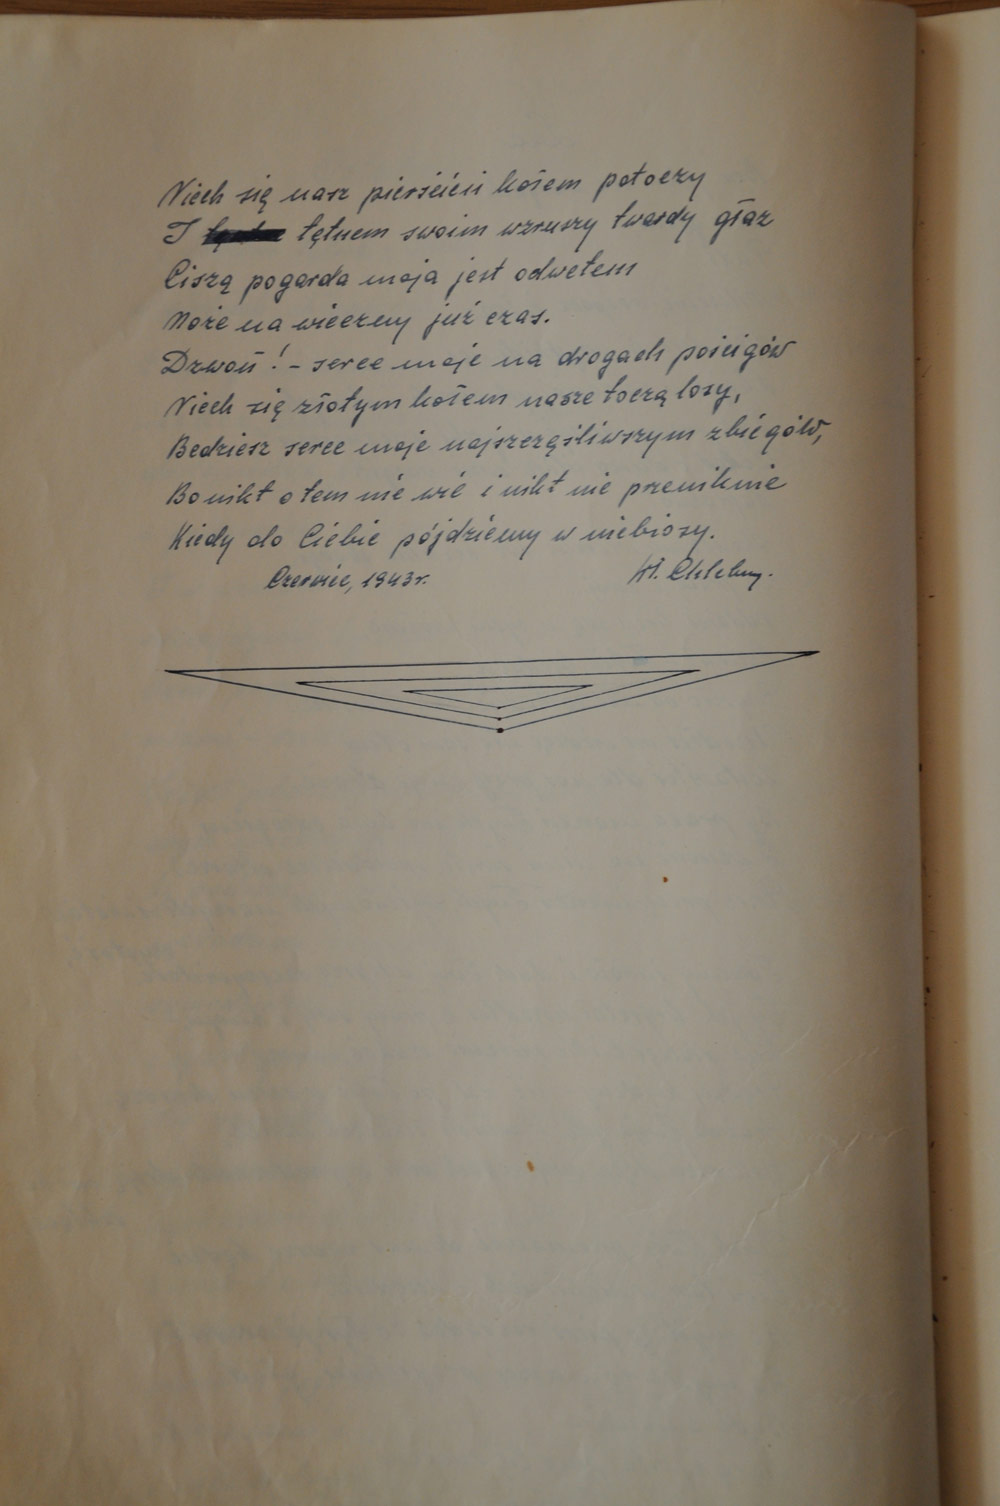 Niech się nasz pierścień kołem potoczy
I tętnem swoim wzruszy twardy głaz
Ciszą pogarda moja jest odwetem
Może na wieczny już czas.
Dzwoń! – serce moje na drogach pościgów
Niech się złotym kołem nasze toczą losy,
Bedziesz serce moje najszczęśliwszym zbiegów,
Bo nikt o tem nie wie i nikt nie przeniknie
Kiedy do Ciebie pójdziemy w niebiosy.
Czerwiec, 1943r. Wł.